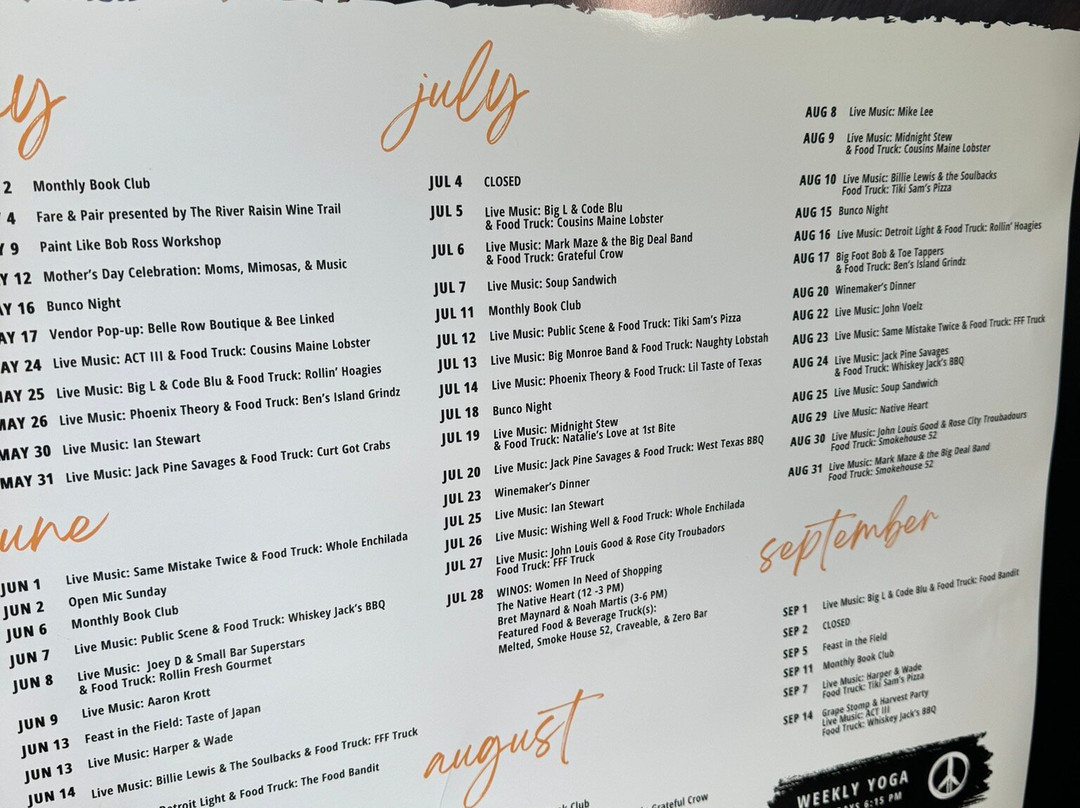 july
JUL 4 CLOSED
JUL 5 Live Music: Big L & Code Blu
& Food Truck: Cousins Maine Lobster
JUL 6 Live Music: Mark Maze & the Big Deal Band
& Food Truck: Grateful Crow
JUL 7 Live Music: Soup Sandwich
JUL 11 Monthly Book Club
JUL 12 Live Music: Public Scene & Food Truck: Tiki Sam's Pizza
JUL 13 Live Music: Big Monroe Band & Food Truck: Naughty Lobstah
JUL 14 Live Music: Phoenix Theory & Food Truck: Lil Taste of Texas
JUL 18 Bunco Night
JUL 19 Live Music: Midnight Stew
& Food Truck: Natalie's Love at 1st Bite
JUL 20 Live Music: Jack Pine Savages & Food Truck: West Texas BBQ
JUL 23 Winemaker's Dinner
JUL 25 Live Music: Ian Stewart
JUL 26 Live Music: Wishing Well & Food Truck: Whole Enchilada
JUL 27 Live Music: John Louis Good & Rose City Troubadors
Food Truck: FFF Truck
JUL 28 WINOS: Women In Need of Shopping
The Native Heart (12 -3 PM)
Bret Maynard & Noah Martis (3-6 PM)
Featured Food & Beverage Truck(s):
Melted, Smoke House 52, Craveable, & Zero Bar
august
k Club
Grateful Crow
y
2 Monthly Book Club
4 Fare & Pair presented by The River Raisin Wine Trail
Y 9 Paint Like Bob Ross Workshop
Y 12 Mother's Day Celebration: Moms, Mimosas, & Music
AY 16 Bunco Night
AY 17 Vendor Pop-up: Belle Row Boutique & Bee Linked
AY 24 Live Music: ACT III & Food Truck: Cousins Maine Lobster
MAY 25 Live Music: Big L & Code Blu & Food Truck: Rollin' Hoagies
MAY 26 Live Music: Phoenix Theory & Food Truck: Ben's Island Grindz
MAY 30 Live Music: Ian Stewart
MAY 31 Live Music: Jack Pine Savages & Food Truck: Curt Got Crabs
une
JUN 1 Live Music: Same Mistake Twice & Food Truck: Whole Enchilada
JUN 2 Open Mic Sunday
JUN 6 Monthly Book Club
JUN 7 Live Music: Public Scene & Food Truck: Whiskey Jack's BBQ
JUN 8 Live Music: Joey D & Small Bar Superstars
& Food Truck: Rollin Fresh Gourmet
JUN 9 Live Music: Aaron Krott
JUN 13 Feast in the Field: Taste of Japan
JUN 13 Live Music: Harper & Wade
JUN 14 Live Music: Billie Lewis & The Soulbacks & Food Truck: FFF Truck
Detroit Light & Food Truck: The Food Bandit
AUG 8 Live Music: Mike Lee
AUG 9 Live Music: Midnight Stew
& Food Truck: Cousins Maine Lobster
AUG 10 Live Music: Billie Lewis & the Soulbacks
Food Truck: Tiki Sam's Pizza
AUG 15 Bunco Night
AUG 16 Live Music: Detroit Light & Food Truck: Rollin' Hoagies
AUG 17 Big Foot Bob & Toe Tappers
& Food Truck: Ben's Island Grindz
AUG 20 Winemaker's Dinner
AUG 22 Live Music: John Voelz
AUG 23 Live Music: Same Mistake Twice & Food Truck: FFF Truck
AUG 24 Live Music: Jack Pine Savages
& Food Truck: Whiskey Jack's BBQ
AUG 25 Live Music: Soup Sandwich
AUG 29 Live Music: Native Heart
AUG 30 Live Music: John Louis Good & Rose City Troubadours
Food Truck: Smokehouse 52
AUG 31 Live Music: Mark Maze & the Big Deal Band
Food Truck: Smokehouse 52
september
SEP 1 Live Music: Big L & Code Blu & Food Truck: Food Bandit
SEP 2 CLOSED
SEP 5 Feast in the Field
SEP 11 Monthly Book Club
SEP 7 Live Music: Harper & Wade
Food Truck: Tiki Sam's Pizza
SEP 14 Grape Stomp & Harvest Party
Live Music: ACT III
Food Truck: Whiskey Jack's BBQ
WEEKLY YOGA
AYS 6:15 PM